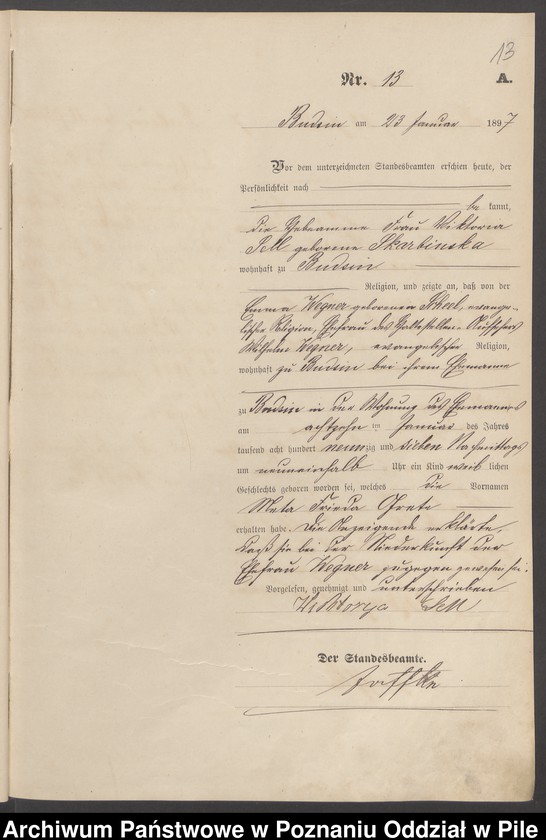 13
Nr. 13 A.
Budsin am 23 Januar 1897
Vor dem unterzeichneten Standesbeamten erschien heute, der
Persönlichkeit nach
be kannt,
die Hebeamme Frau Viktoria
Sell geborene Skarbinska
wohnhaft zu Budsin
Religion, und zeigte an, daß von der
Emma Wegner geborenen Theel, evange-
lischer Religion, Ehefrau des Haltestellen-Aufsehers
Wilhelm Wegner, evangelischer Religion,
wohnhaft zu Budsin bei ihrem Ehemanne
zu Budsin in der Wohnung des Ehemannes
am achtzehn ten Januar des Jahres
tausend acht hundert neunzig und sieben Nachmittags
um neuneinhalb Uhr ein Kind weib lichen
Geschlechts geboren worden sei, welches die Vornamen
Meta Frieda Grete
erhalten habe. Die Anzeigende erklärte,
daß sie bei der Niederkunft der
Ehefrau Wegner zugegen gewesen sei.
Vorgelesen, genehmigt und unterschrieben
Wiktorya Sell
Der Standesbeamte.
Jaffke
Archiwum Państwowe w Poznaniu Oddział w Pile